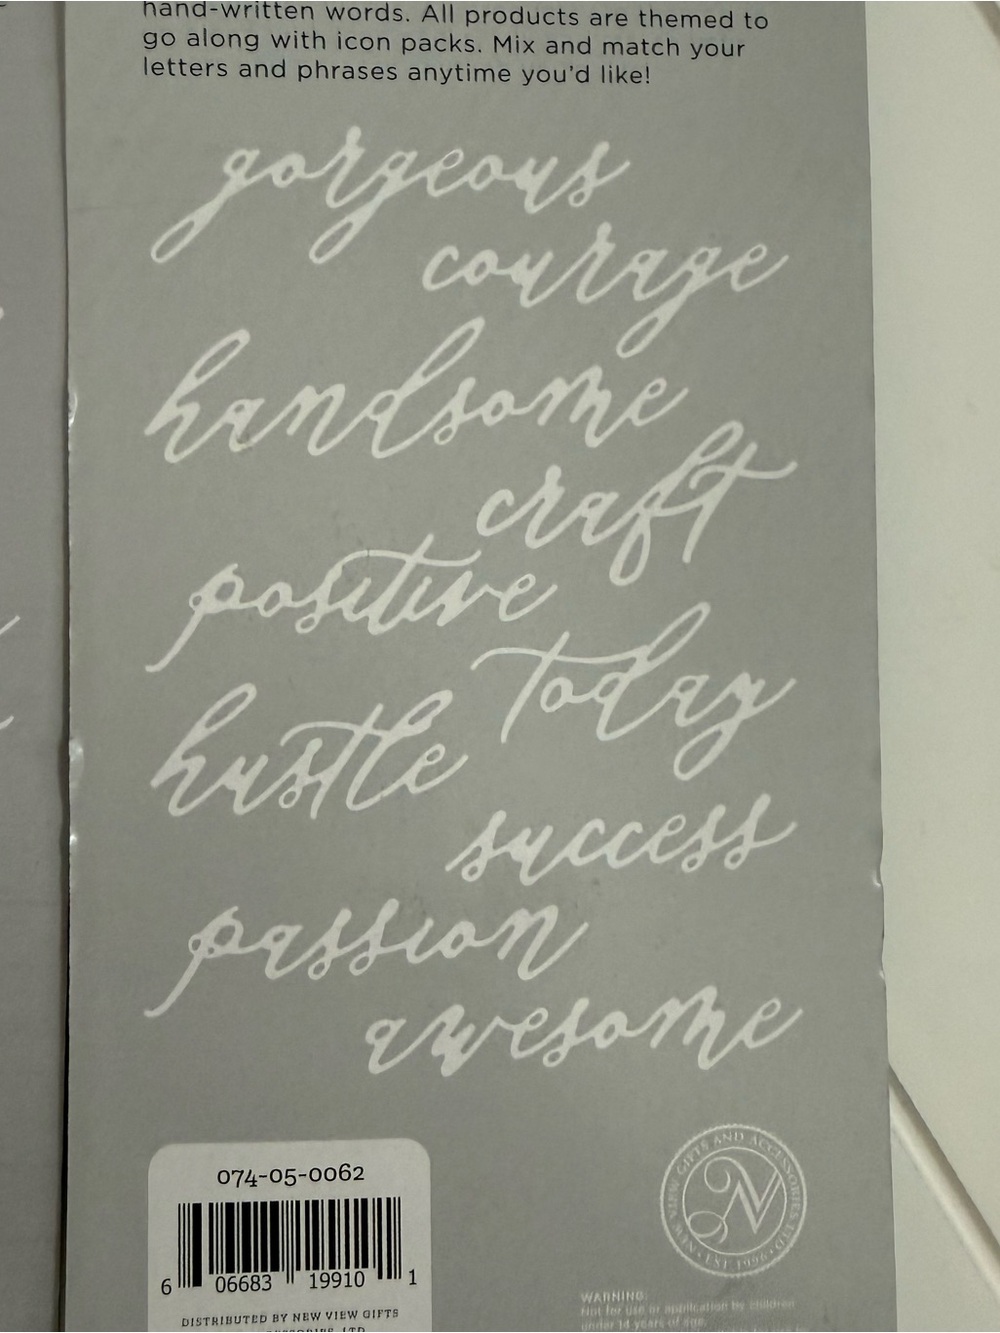 hand-written words. All products are themed to
go along with icon packs. Mix and match your
letters and phrases anytime you'd like!
gorgeous
courage
handsome
craft
positive
today
hustle
success
passion
awesome
074-05-0062
6 06683 19910 1
DISTRIBUTED BY NEW VIEW GIFTS
LTD
NEW VIEW GIFTS AND ACCESSORIES LTD
• EST 1996 •
N
WARNING:
Not for use or application by children
under 14 years of age.